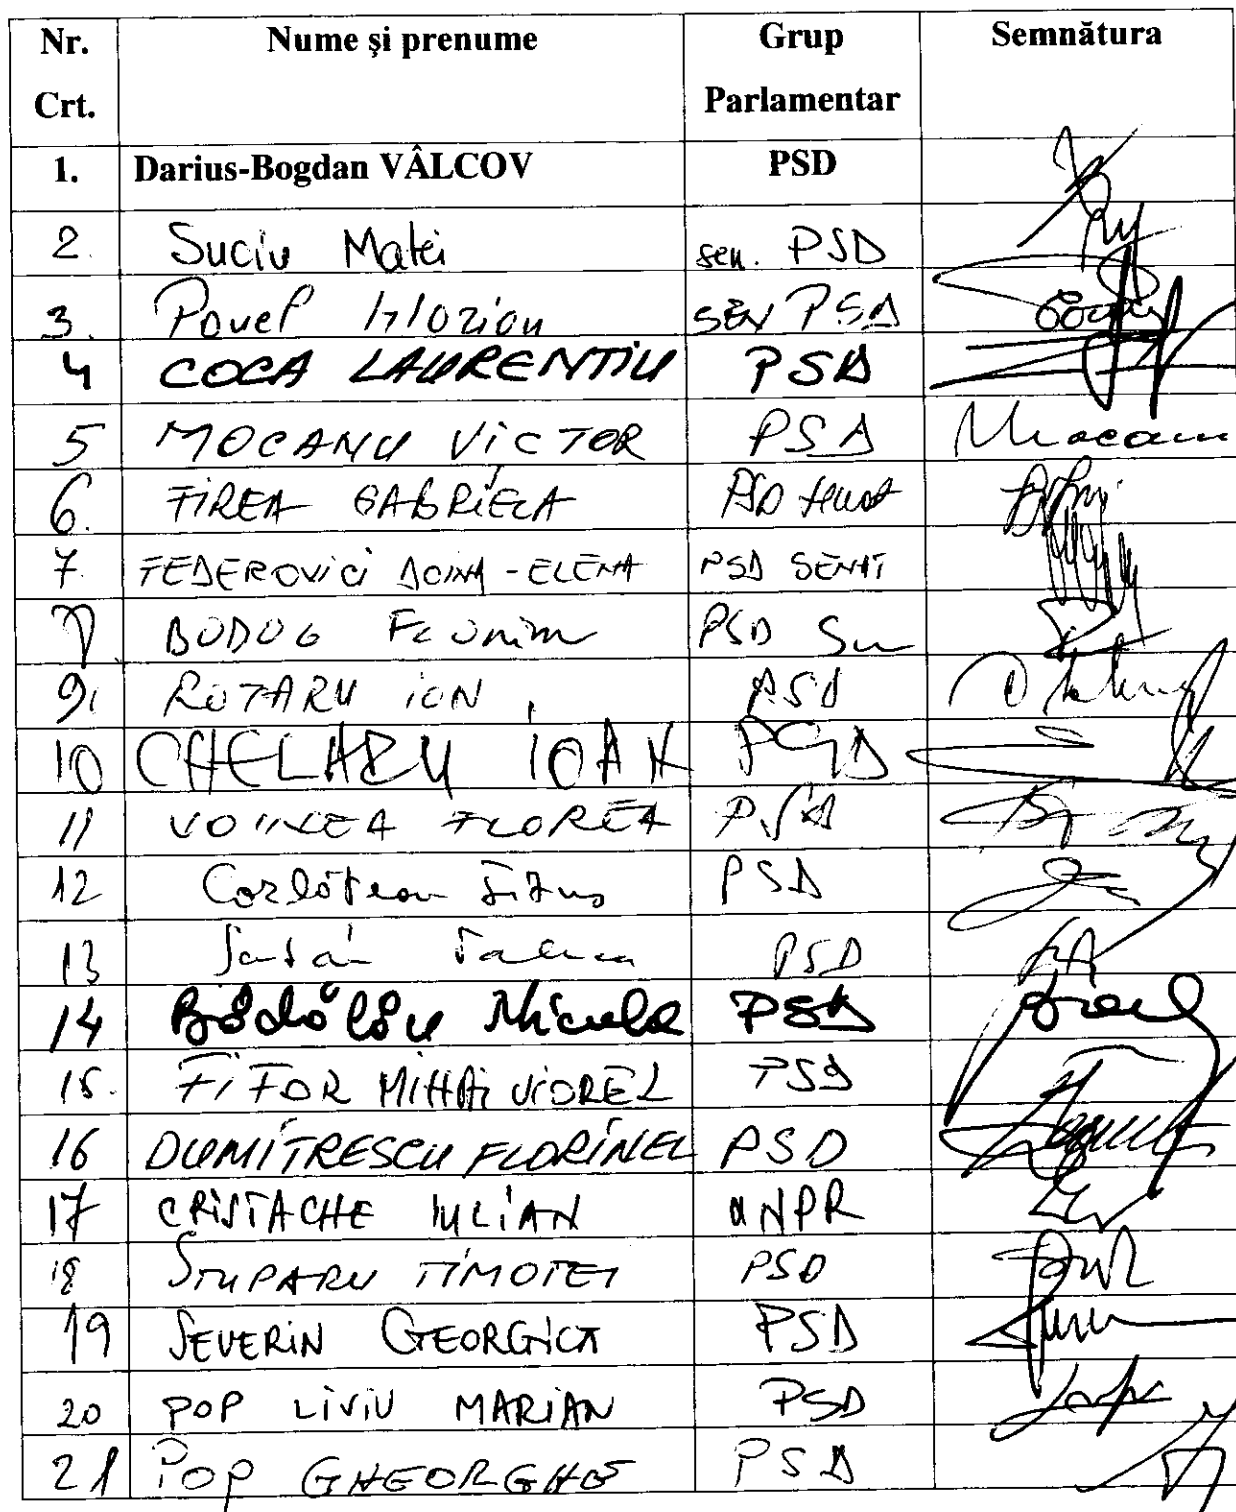 Nr. Crt. Nume și prenume Grup Parlamentar Semnătura
1. Darius-Bogdan VÂLCOV PSD
2. Suciu Matei sen. PSD
3. Pavel PSD
4 COCA LAURENTIU PSD
5 MOCANU VICTOR PSD Mocanu
6. FIREA GABRIELA PSD
7 FEDEROVICI DOINA-ELENA PSD SENAT
8 BODOG Florian PSD
9. ROTARU ION PSD
10 CHELARU IOAN PSD
11 VOINEA FLOREA PSD
12 Corlățean Titus PSD
13 PSD
14 Bădălău Niculae PSD
15. FIFOR MIHAI VIOREL PSD
16 DUMITRESCU FLORINEL PSD
17 CRISTACHE IULIAN UNPR
18 STUPARU TIMOTEI PSD
19 SEVERIN GEORGICA PSD
20 POP LIVIU MARIAN PSD
21 POP GHEORGHE PSD